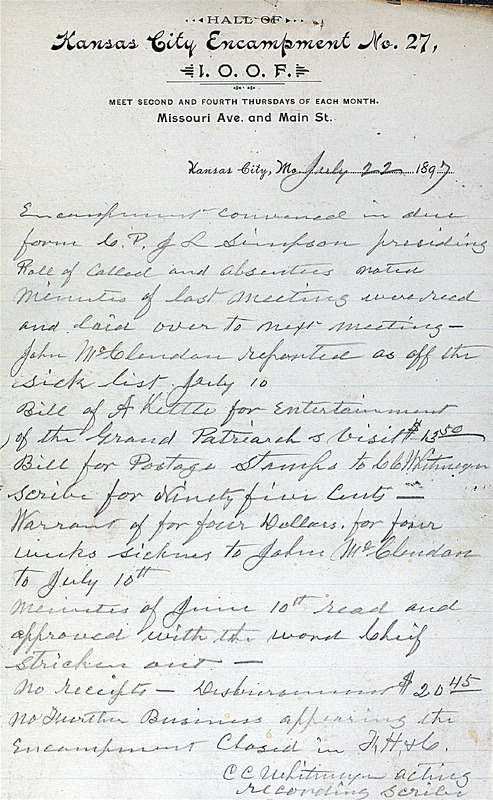 HALL OF
Kansas City Encampment No. 27,
I. O. O. F.
MEET SECOND AND FOURTH THURSDAYS OF EACH MONTH.
Missouri Ave. and Main St.
Kansas City, Mo. July 22 1897
Encampment convened in due
form C. P. J L Simpson presiding
Roll of Called and absentees noted
Minutes of last meeting were read
and laid over to next meeting—
John McClendon reported as off the
sick list July 10
Bill of A Kettle for Entertainment
of the Grand Patriarch s Visit $13 50
Bill for Postage Stamps to C C Whitmeyn
Scribe for Ninety five Cents —
Warrant of for four Dollars. for four
weeks sickness to John McClendon
to July 10th
Minutes of June 10th read and
approved with the word Chief
stricken out —
No receipts — $20 45
No Further Business appearing the
Encampment Closed in F, H & C.
C C Whitmeyn acting
recording scribe